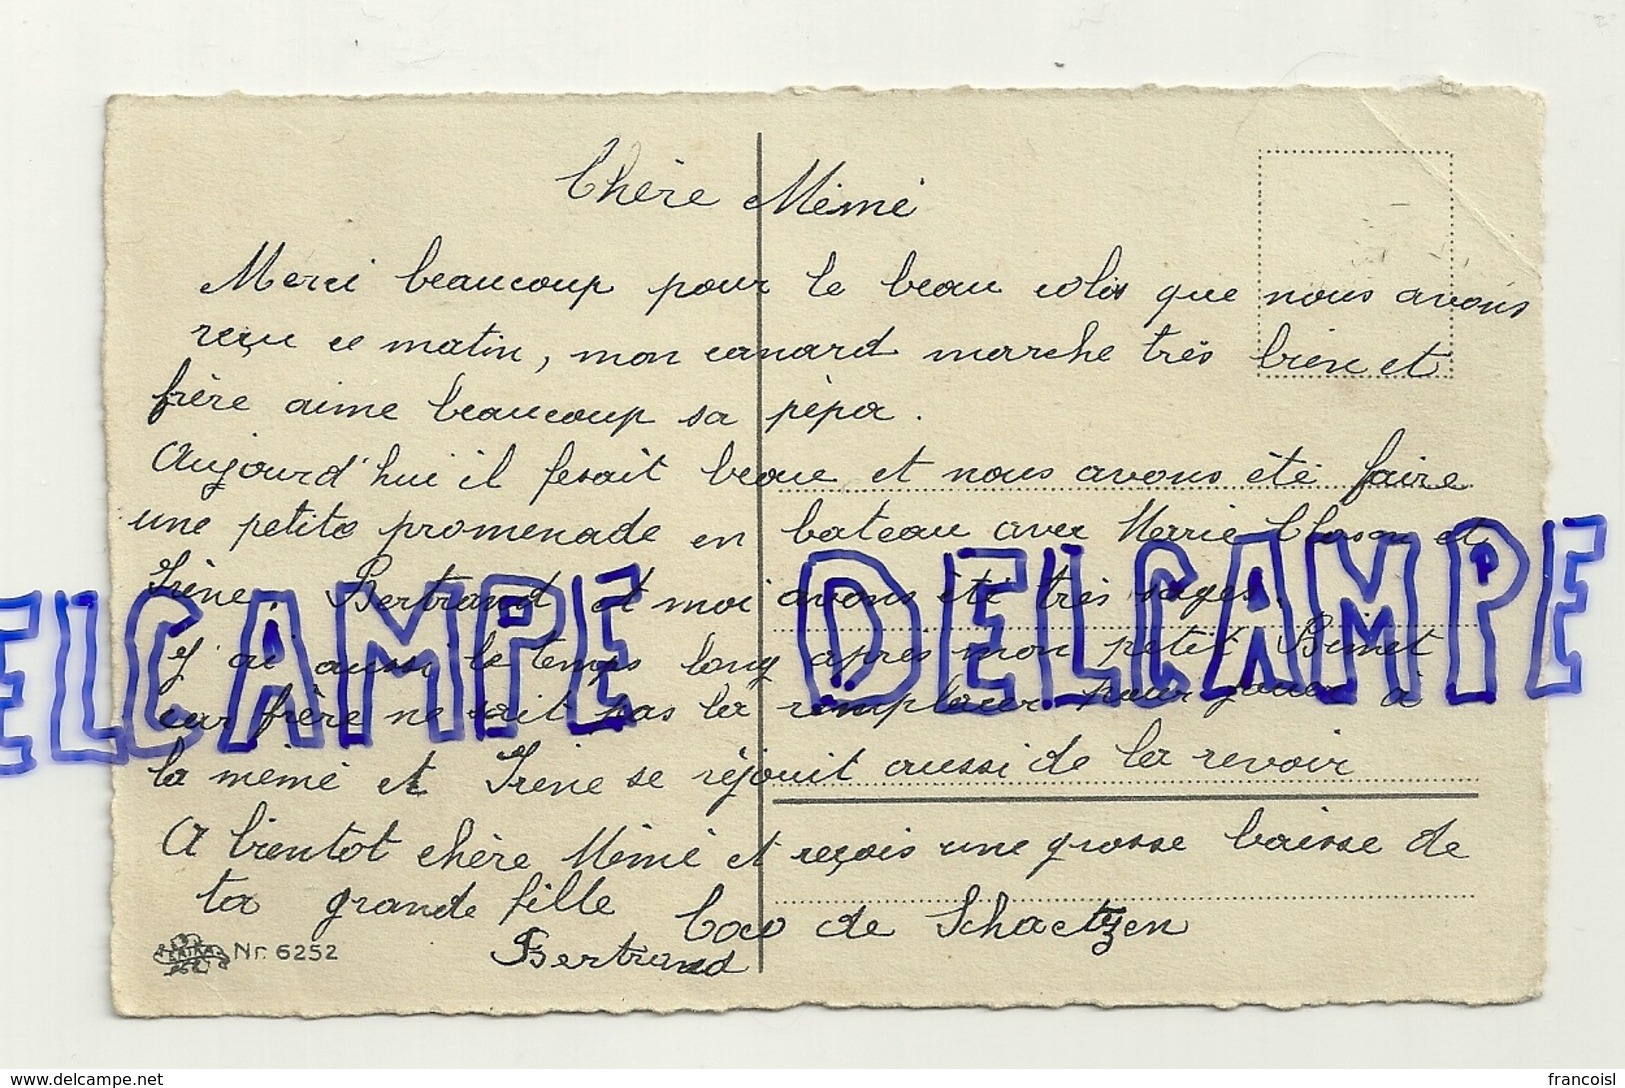 Chère Mémé
Merci beaucoup pour le beau colis que nous avons
reçu ce matin, mon canard marche très bien et
frère aime beaucoup sa pépa.
Aujourd'hui il fesait beau et nous avons été faire
une petite promenade en bateau avec Marie Closon et
Irène. Bertrand et moi avons été très sages.
J'ai aussi le temps long après mon petit Bimet
car frère ne sait pas la remplacer pour jouer à
la mémé et Irène se réjouit aussi de la revoir
A bientot chère Mémé et reçois une grosse baisse de
ta grande fille Coco de Schaetzen
Bertrand
Nr. 6252
DELCAMPE DELCAMPE
www.delcampe.net
francoisl